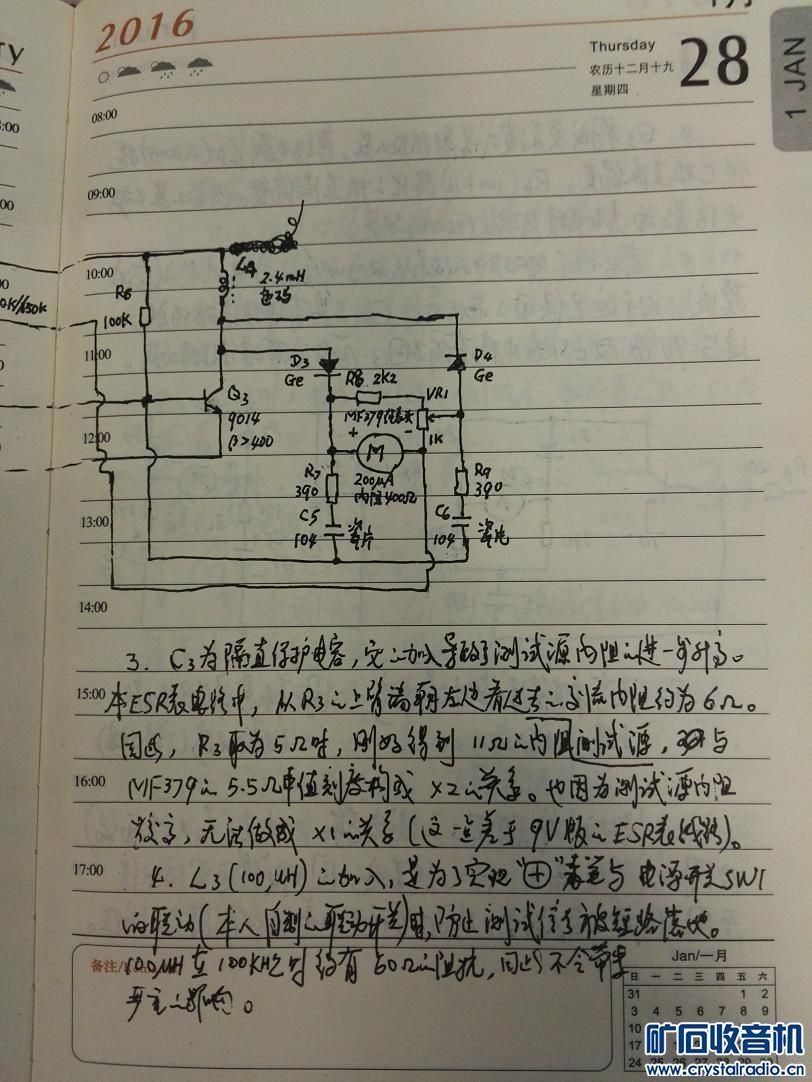 TY
2016
1月
Thursday
农历十二月十九
星期四
28
1 JAN
08:00
09:00
10:00
L4
2.4mH
色码
R6
100K
0K//650K
11:00
D3
Ge
D4
Ge
R8 2K2
VR1
Q3
9014
β>400
MF379
1K
12:00
+
-
M
R7
390
200μA
内阻400Ω
R9
390
C5
104
瓷片
C6
104
瓷片
13:00
14:00
3. C3为隔直保护电容,它之加入导致了测试源内阻之进一步升高。
15:00
本ESR表电路中,从R3之上臂端朝左边看过去之交流内阻约为6Ω。
因此,R3取为5Ω时,刚好得到11Ω之内阻测试源,与
16:00
MF379之5.5Ω中值刻度构成×2之关系。也因为测试源内阻
较高,无法做成×1之关系(这一点差于9V版之ESR表线路)。
17:00
4. L3(100μH)之加入,是为了实现“⊕”表笔与电源开关SW1
的联动(本人自制之联动开关)时,防止测试信号被短路落地。
备注/
100μH在100KHz时约有60Ω之阻抗,因此不会带来
严重之影响。
Jan/一月
日 一 二 三 四 五 六
31 1 2
3 4 5 6 7 8 9
10
17
24 25 26 27 28 29 30
矿石收音机
www.crystalradio.cn